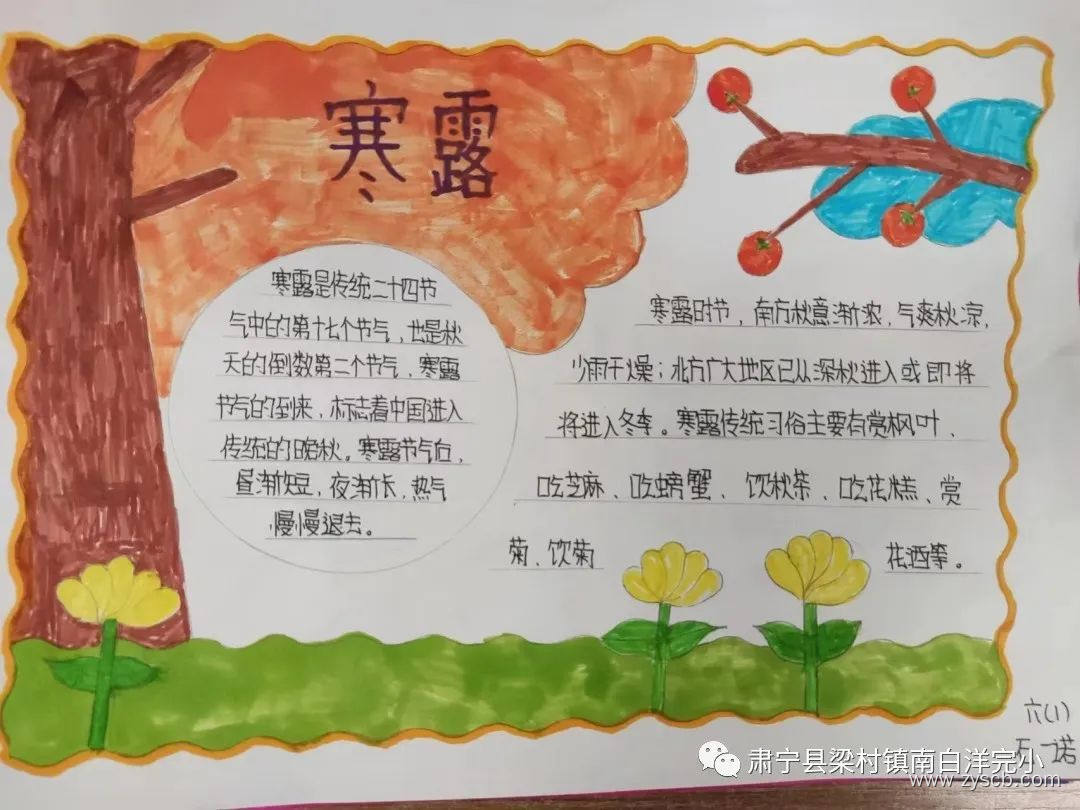 寒露
寒露是传统二十四节
气中的第十七个节气，也是秋
天的倒数第二个节气，寒露
节气的到来，标志着中国进入
传统的晚秋。寒露节气后，
昼渐短，夜渐长，热气
慢慢退去。
寒露时节，南方秋意渐浓，气爽秋凉，
少雨干燥；北方广大地区已从深秋进入或即将
将进入冬季。寒露传统习俗主要有赏枫叶、
吃芝麻、吃螃蟹、饮秋茶、吃花糕、赏
菊、饮菊 花酒等。
六(1)
一诺
肃宁县梁村镇南白洋完小
www.zyscb.com